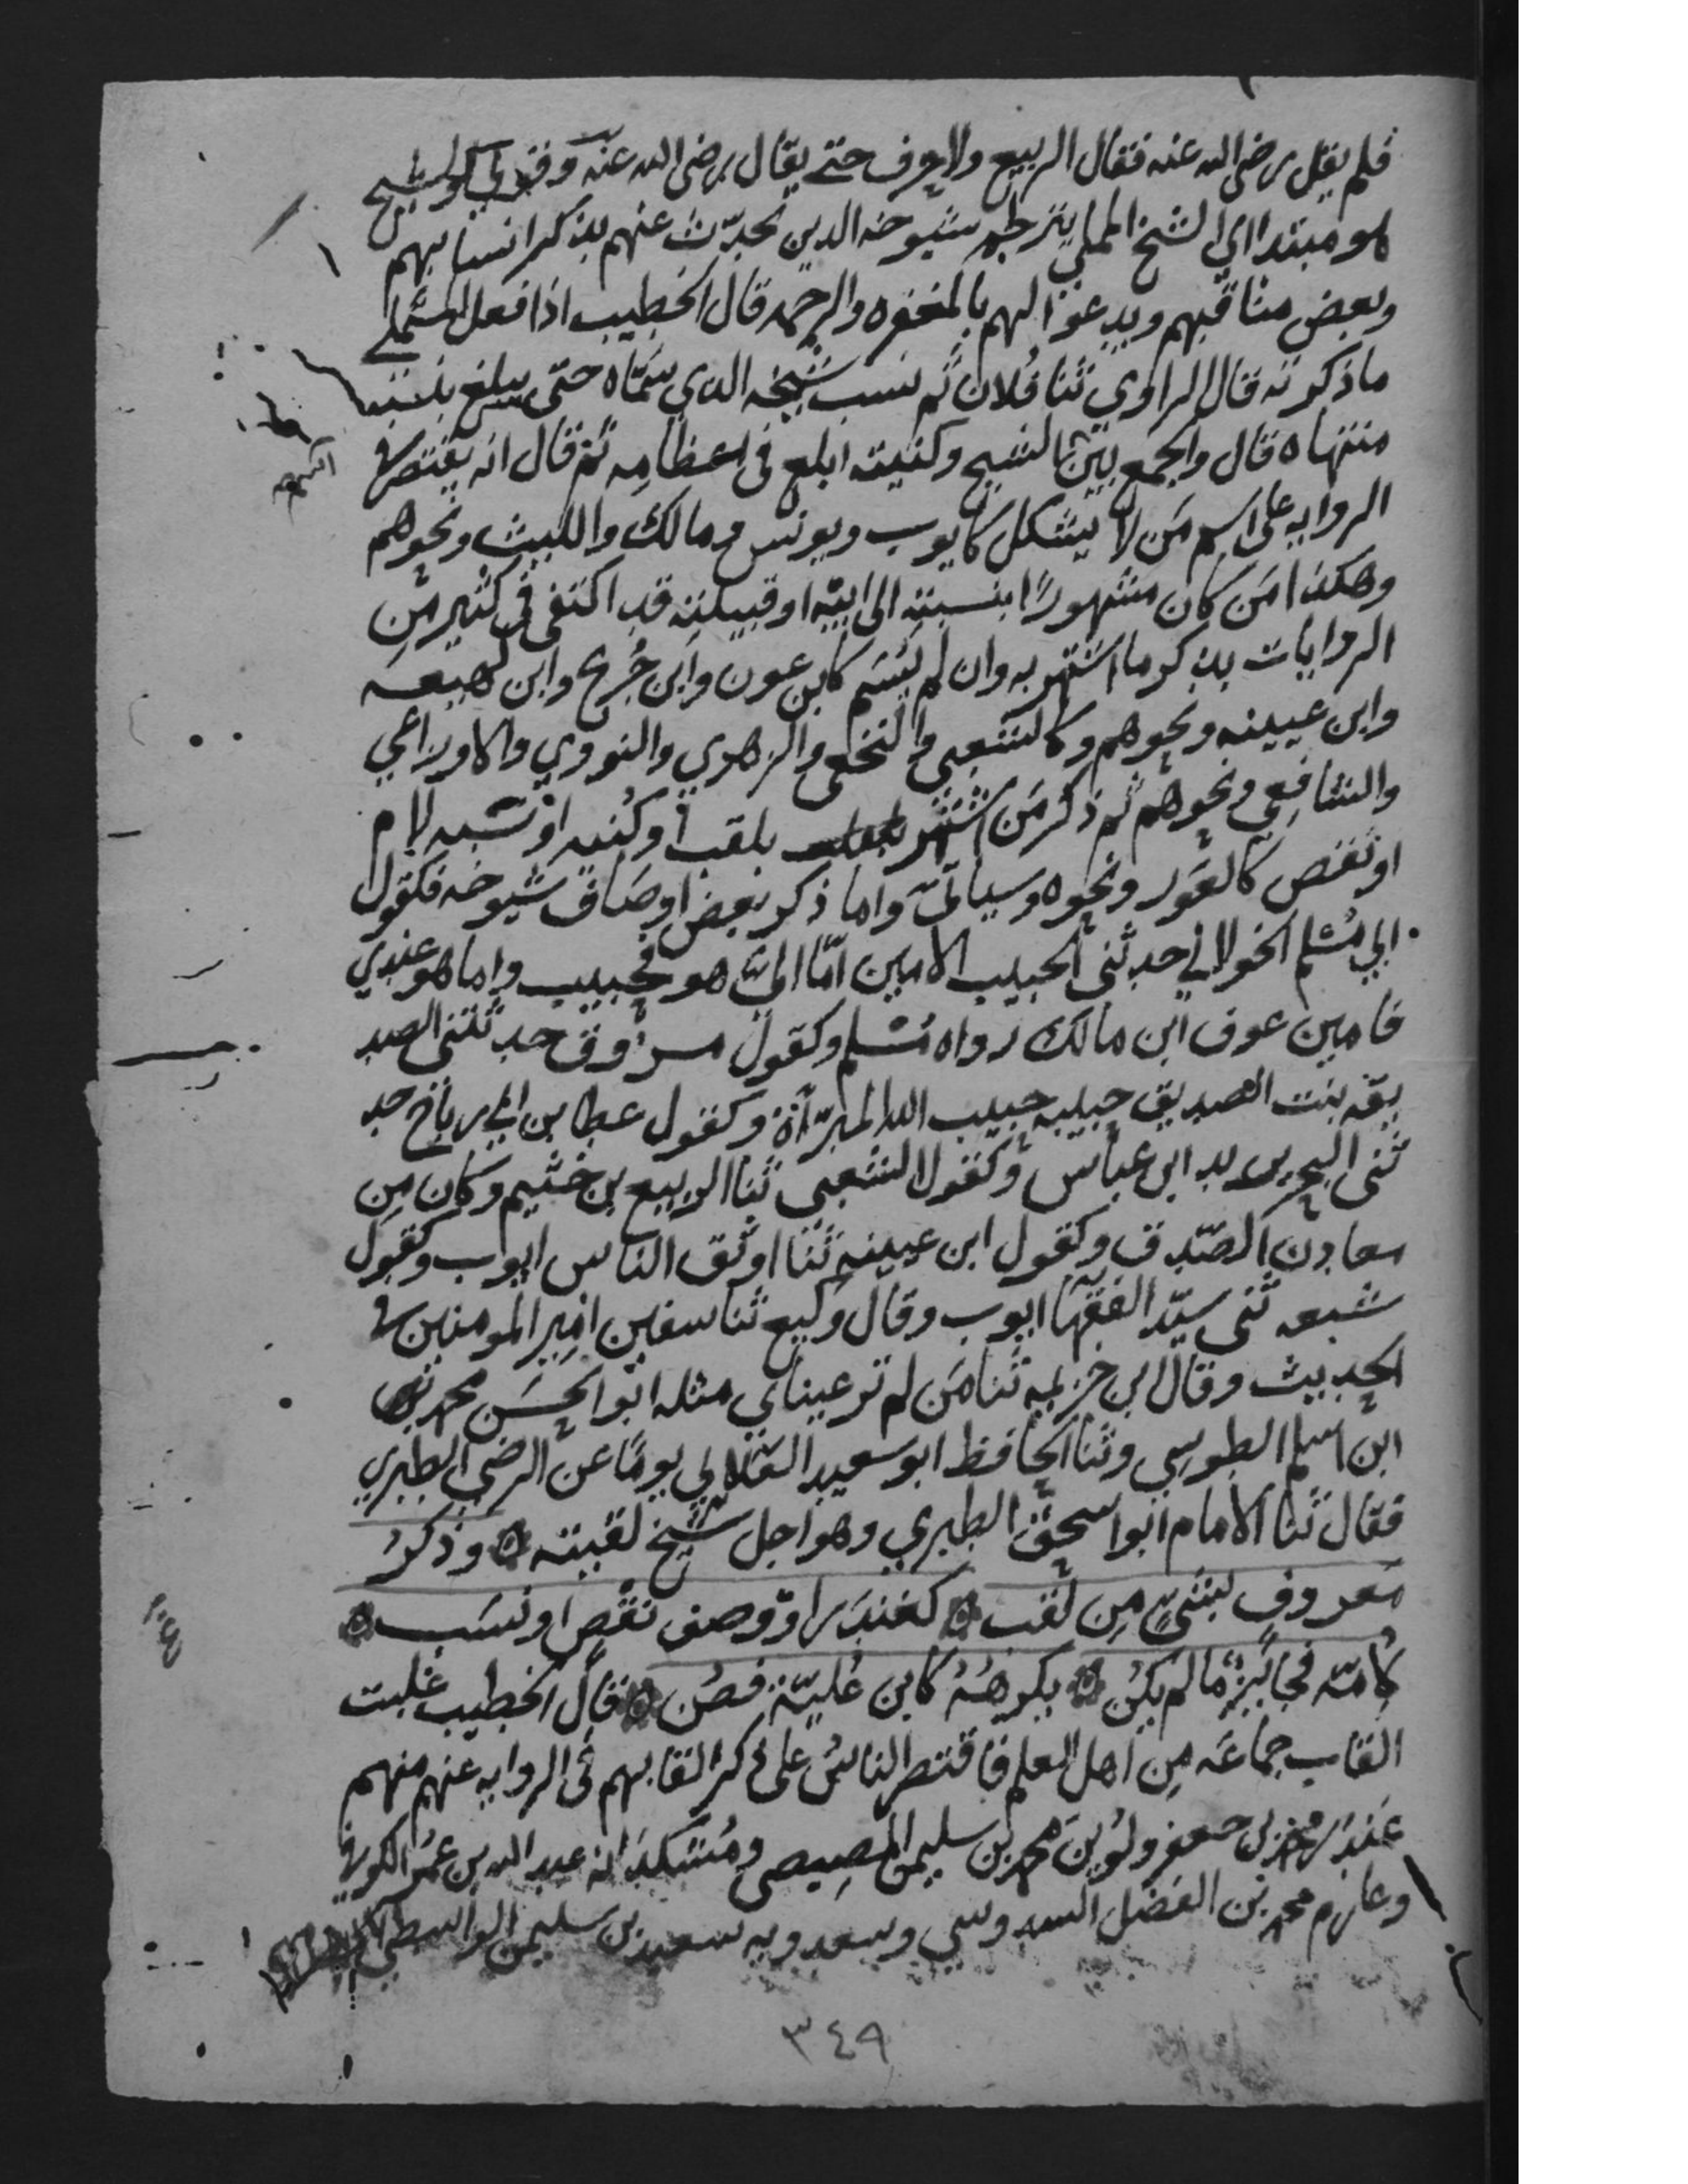 فلم يقل رضى الله عنه فقال الربيع ولا حرف حتى يقال رضى الله عنه وقولي والشيخ
هو مبتدا اي الشيخ المملي يترجم شيوخه الدين تحدث عنهم بذكر انسابهم
وبعض مناقبهم ويدعوا لهم بالمغفره والرحمه قال الخطيب اذا فعل المستملي
ما ذكرته قال الراوي ثنا فلان ثم نسب شيخه الدي سماه حتى يبلغ بنسبه
منتهاه قال والجمع بين الشيخ وكنيته ابلغ فى اعظامه ثم قال انه يقتصر في
الروايه على اسم من لا يشكل كايوب ويونس ومالك والليث ونحوهم
وهكذا من كان مشهورًا بنسبته الى ابيه او قبيلته قد اكتفى فى كثير من
الروايات بذكر ما اشتهر به وان لم يسم كابن عون وابن جُريج وابن لهيعه
وابن عيينه ونحوهم وكالشعبى والنخعى والزهري والنووي والاوزاعي
والشافعي ونحوهم ثم ذكر من اشتهر بلقب او كنيه او نسبه لام
او نقص كالعور ونحوه وسياتى واما ذكر بعض اوصاف شيوخه فكقول
ابي مسلم الخولاني حدثنى الحبيب الامين اما اليّ هو فحبيب واما هو عندي
فامين عوف ابن مالك رواه مسلم وكقول مسروق حدثتنى الصد
يقه بنت الصديق حبيبه حبيب الله المبرّأة وكقول عطا بن ابي رباح حد
ثنى البحر ابن عباس وكقول الشعبى ثنا الربيع بن خثيم وكان من
معادن الصدق وكقول ابن عيينه ثنا اوثق الناس ايوب وكقول
شعبه ثنى سيّد الفقها ايوب وقال وكيع ثنا سفين امير المومنين في
الحديث وقال ابن خزيمه ثنا من لم تر عيناي مثله ابو الحسن محمد
ابن اسلم الطوسي وثنا الحافظ ابو سعيد العلاي يومًا عن الرضي الطبري
فقال ثنا الامام ابو اسحق الطبري وهو اجل شيخ لقيته وذكر
معروف بشيءٍ من لقب كغندر او وصف نقص او نسب
لامّه فجائز ما لم يكن يكرهه كابن عُليّة فصُن قال الخطيب غلبت
القاب جماعه من اهل العلم فاقتصر الناس على ذكر القابهم فى الروايه عنهم منهم
غندر محمد بن جعفر ولوين محمد بن سليمن المصيصي ومشكدانه عبد الله بن عمر الكوفي
وعارم محمد بن الفضل السدوسي وسعدويه سعيد بن سليمن الواسطي
٣٤٩